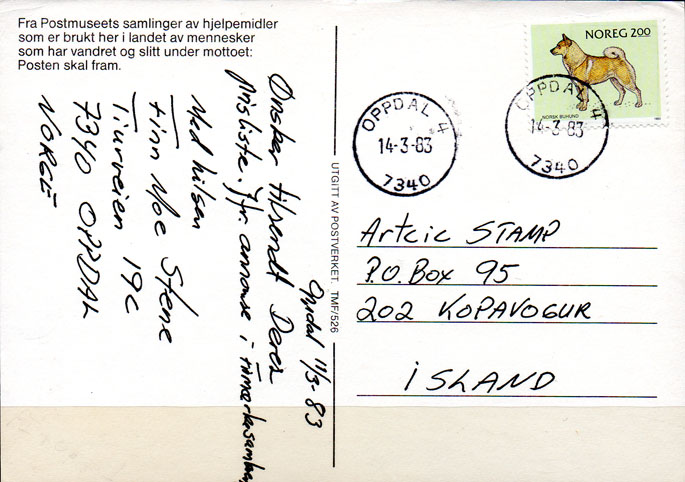 Fra Postmuseets samlinger av hjelpemidler
som er brukt her i landet av mennesker
som har vandret og slitt under mottoet:
Posten skal fram.
Oppdal 11/3-83
Ønsker tilsendt Deres
prisliste. Jfr. annonse i
Med hilsen
Finn Moe Stene
Tiurveien 19c
7340 OPPDAL
NORGE
UTGITT AV POSTVERKET. TMF/526
NOREG 200
NORSK BUHUND
OPPDAL 4
14-3-83
7340
OPPDAL 4
14-3-83
7340
Artcic STAMP
P.O. Box 95
202 KOPAVOGUR
ISLAND